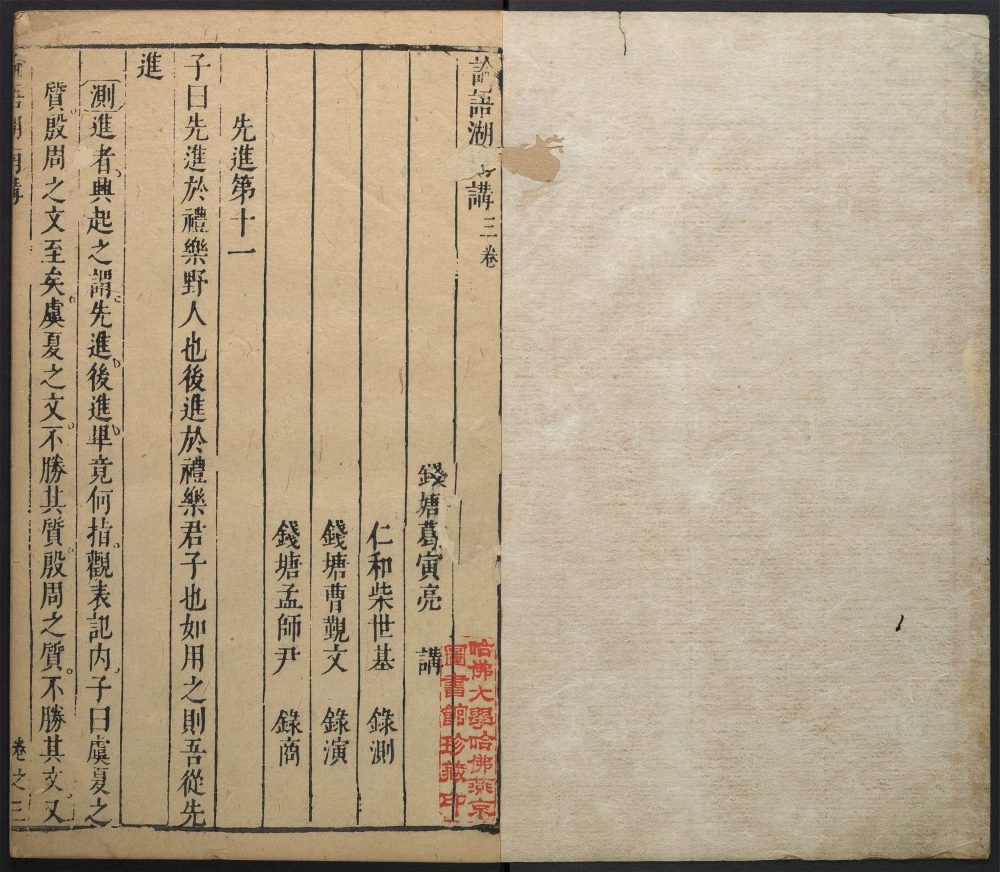 論語湖 講三卷
錢塘葛寅亮 講
仁和柴世基 錄測
錢塘曹觀文 錄演
錢塘孟師尹 錄商
先進第十一
子曰先進於禮樂野人也後進於禮樂君子也如用之則吾從先
進
測進者興起之謂先進後進畢竟何指觀表記内子曰虞夏之
質殷周之文至矣虞夏之文不勝其質殷周之質不勝其文又
論語湖南講 卷之三
哈佛大學哈佛燕京
圖書館珍藏印